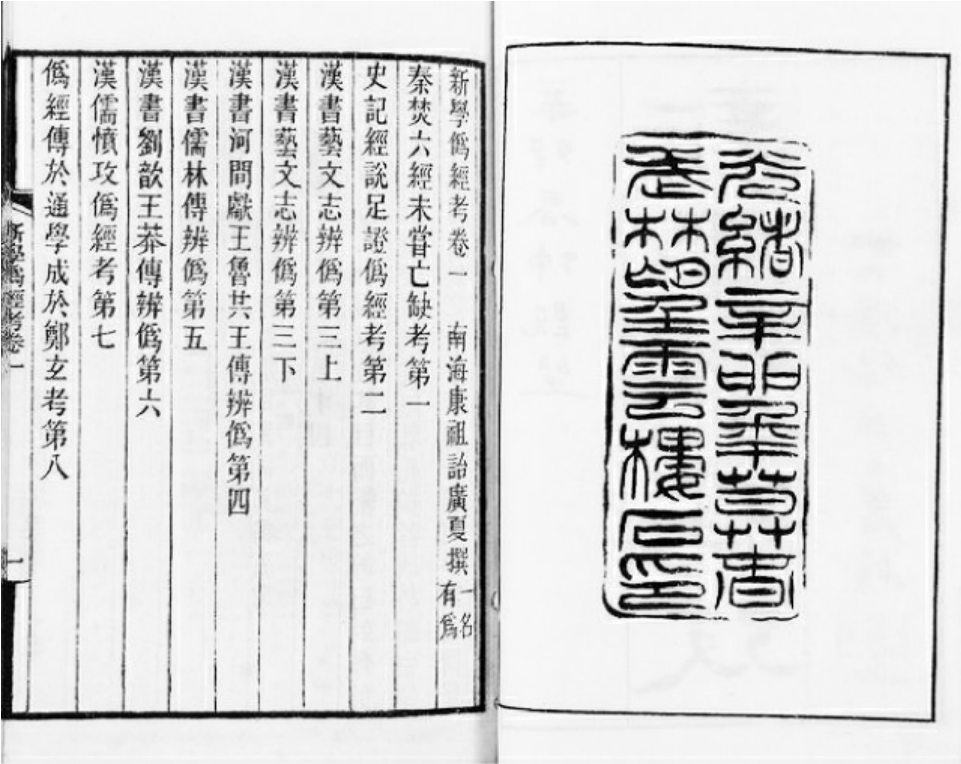 光緒辛卯
武林望雲樓石印
新學僞經考卷一　南海康祖詒廣夏撰　一名有爲
秦焚六經未嘗亡缺考第一
史記經說足證僞經考第二
漢書藝文志辨僞第三上
漢書藝文志辨僞第三下
漢書河間獻王魯共王傳辨僞第四
漢書儒林傳辨僞第五
漢書劉歆王莽傳辨僞第六
漢儒憤攻僞經考第七
僞經傳於通學成於鄭玄考第八
新學僞經考卷一
一